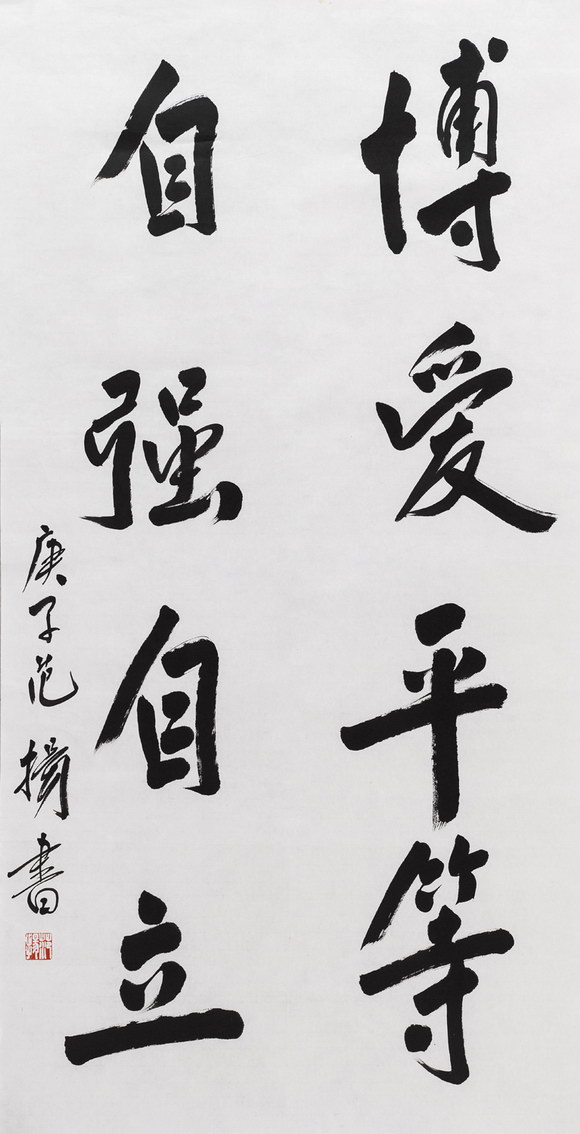 博爱平等
自强自立
庚子范揚書